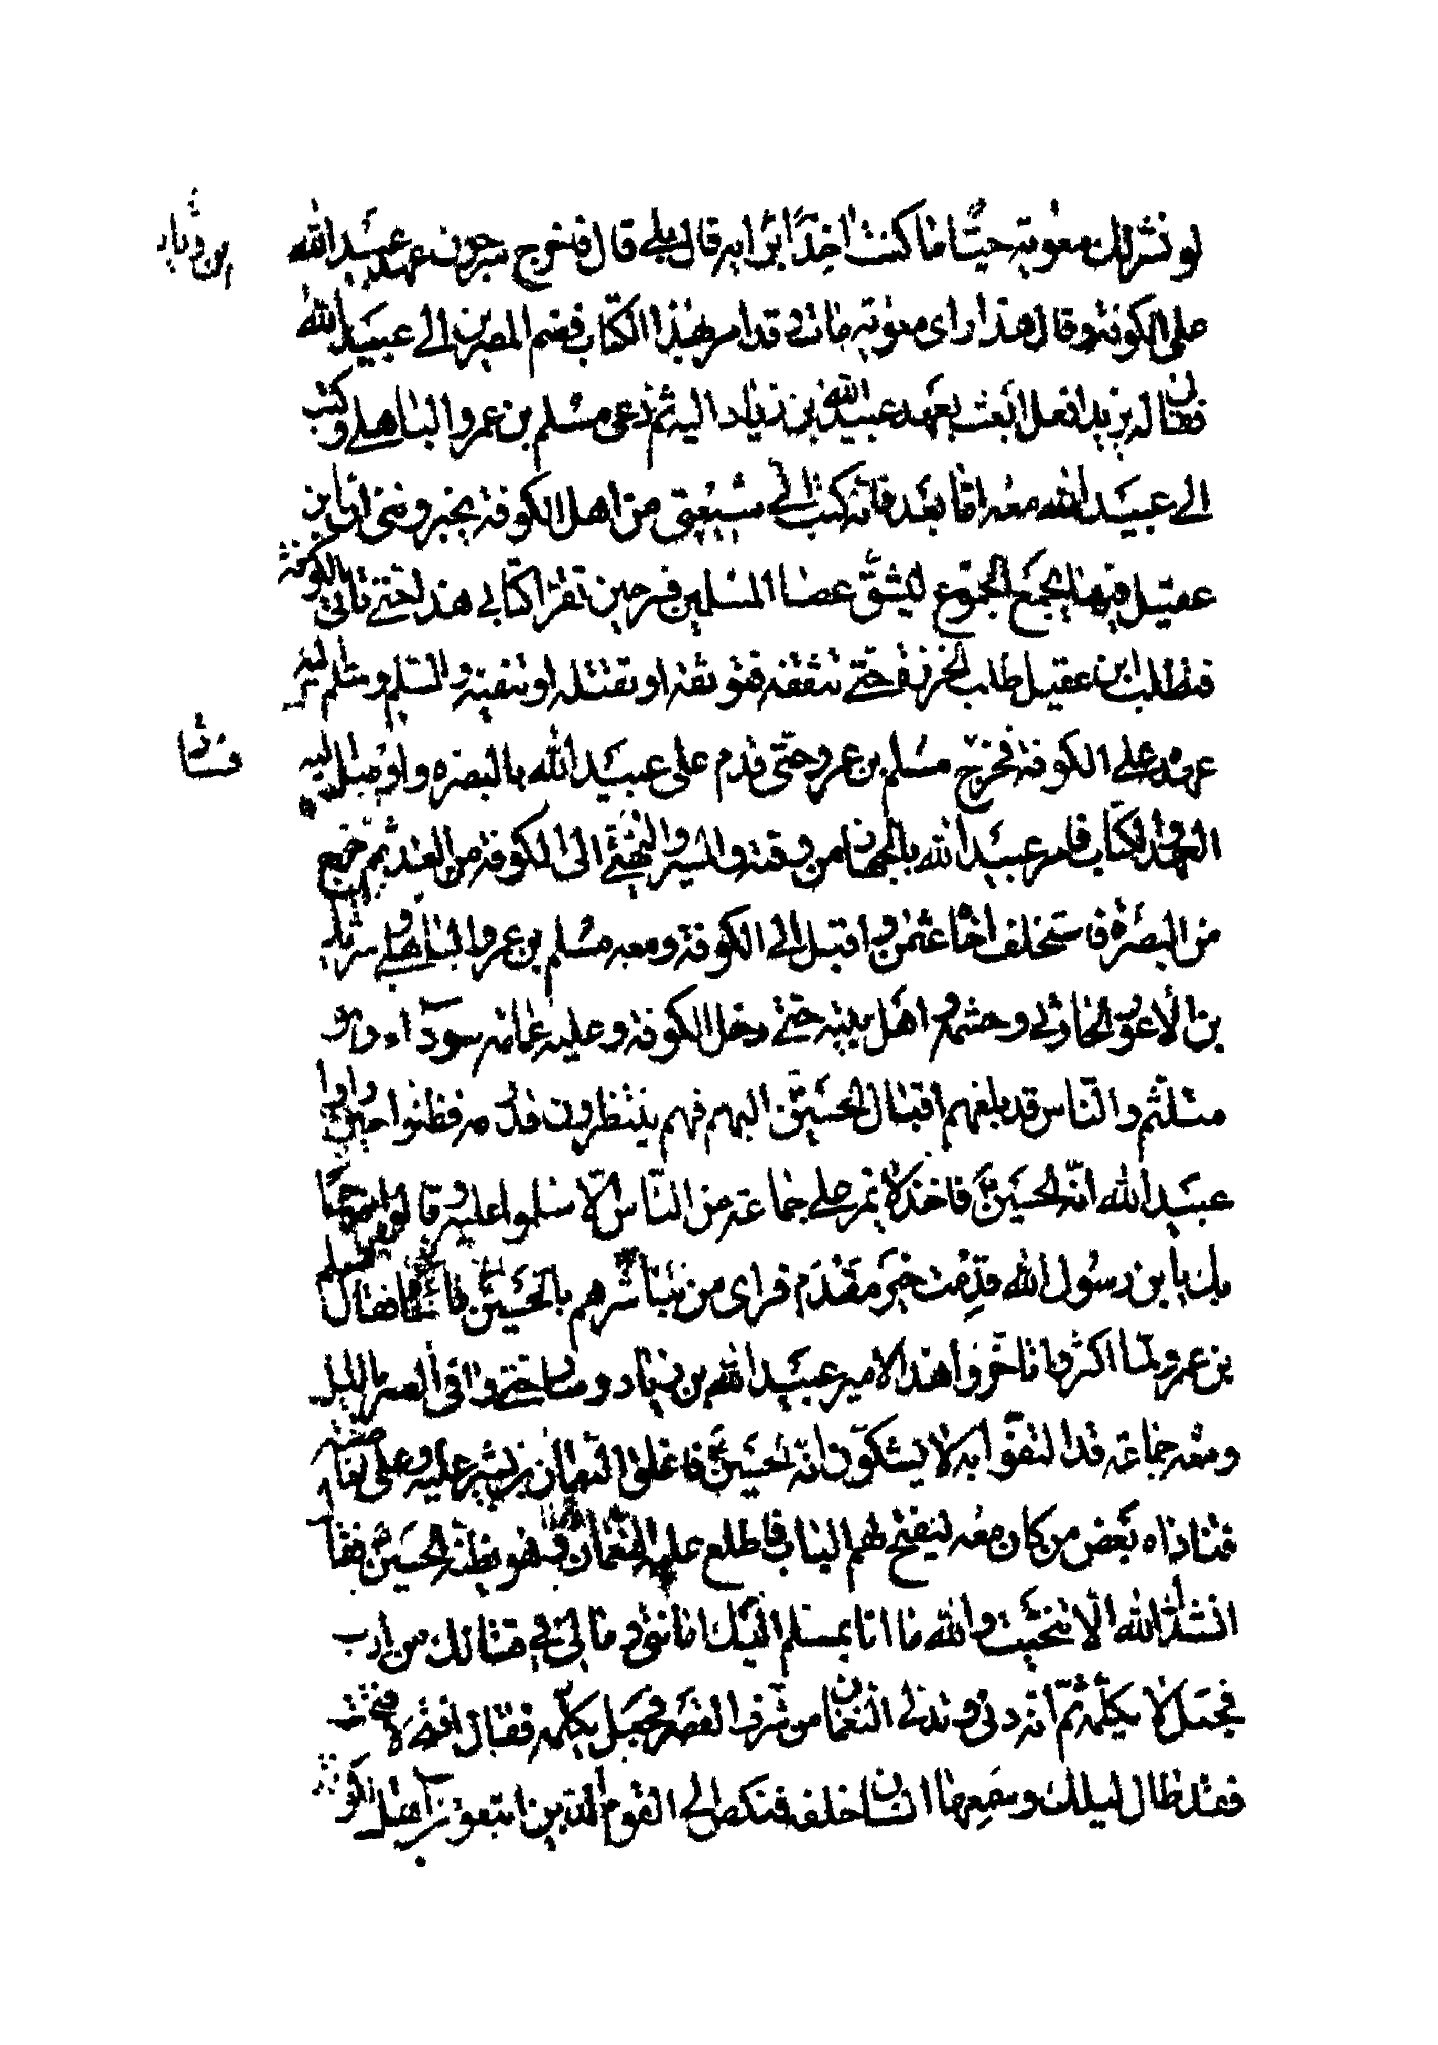 لو نشر لك معوية حيّا ما كنت اخذًا برأيه قال بلى قال فنخرج سرجون عهد عبيد الله
ابن زياد
على الكوفة وقال هذا راى معوية مات وقد امر بهذا الكتاب فضم المصرين الى عبيد الله
فقال له يزيد افعل ابعث بعهد عبيد الله بن زياد اليه ثم دعى مسلم بن عمرو الباهلي وكتب
الى عبيد الله معه امّا بعد فانه كتب الي شيعتي من اهل الكوفة يخبروننى ان ابن
عقيل فيها يجمع الجموع ليشقّ عصا المسلمين فسر حين تقرأ كتابي هذا حتى تاتي الكوفة
فتطلب ابن عقيل طلب الخرزة حتى تثقفه فتوثقه او تقتله او تنفيه والسّلم وسلم اليه
عهده على الكوفة فخرج مسلم بن عمرو حتى قدم على عبيد الله بالبصرة واوصل اليه
العهد والكتاب فامر عبيد الله بالجهاز من وقته والمسير والتهيّئ الى الكوفة من الغد ثم خرج
من البصرة فاستخلف اخاه عثمن واقبل الى الكوفة ومعه مسلم بن عمرو الباهلي وشريك
بن الأعور الحارثى وحشمه واهل بيته حتى دخل الكوفة وعليه عمامة سوداء وهو
متلثم والنّاس قد بلغهم اقبال الحسين اليهم فهم ينتظرون قدومه فظنوا حين راوا
عبيد الله انّه الحسين فاخذ لا يمر على جماعة من النّاس الّا سلموا عليه وقالوا مرحبًا
بك يا بن رسول الله قدمت خير مقدم فراى من تباشرهم بالحسين ما سائه فقال مسلم
بن عمرو لما اكثروا تاخّروا هذا الامير عبيد الله بن زياد وسار حتى وافى القصر بالليل
ومعه جماعة قد التفّوا به لا يشكون انّه الحسين فاغلق النعمان بن بشير عليه وعلى خاصته
فناداه بعض من كان معه ليفتح لهم الباب فاطلع عليه النعمان وهو يظنّه الحسين فقال
انشدك الله الّا تنحيت والله ما انا بمسلم اليك امانتى وما لى في قتالك من ارب
فجعل لا يكلّمه ثمّ انه دنى وتدلى النعمان من شرف القصر فجعل يكلّمه فقال افتح لا فتحت
فقد طال ليلك وسمعها انسان خلفه فنكص الى القوم الذين اتبعوه من اهل الكوفة